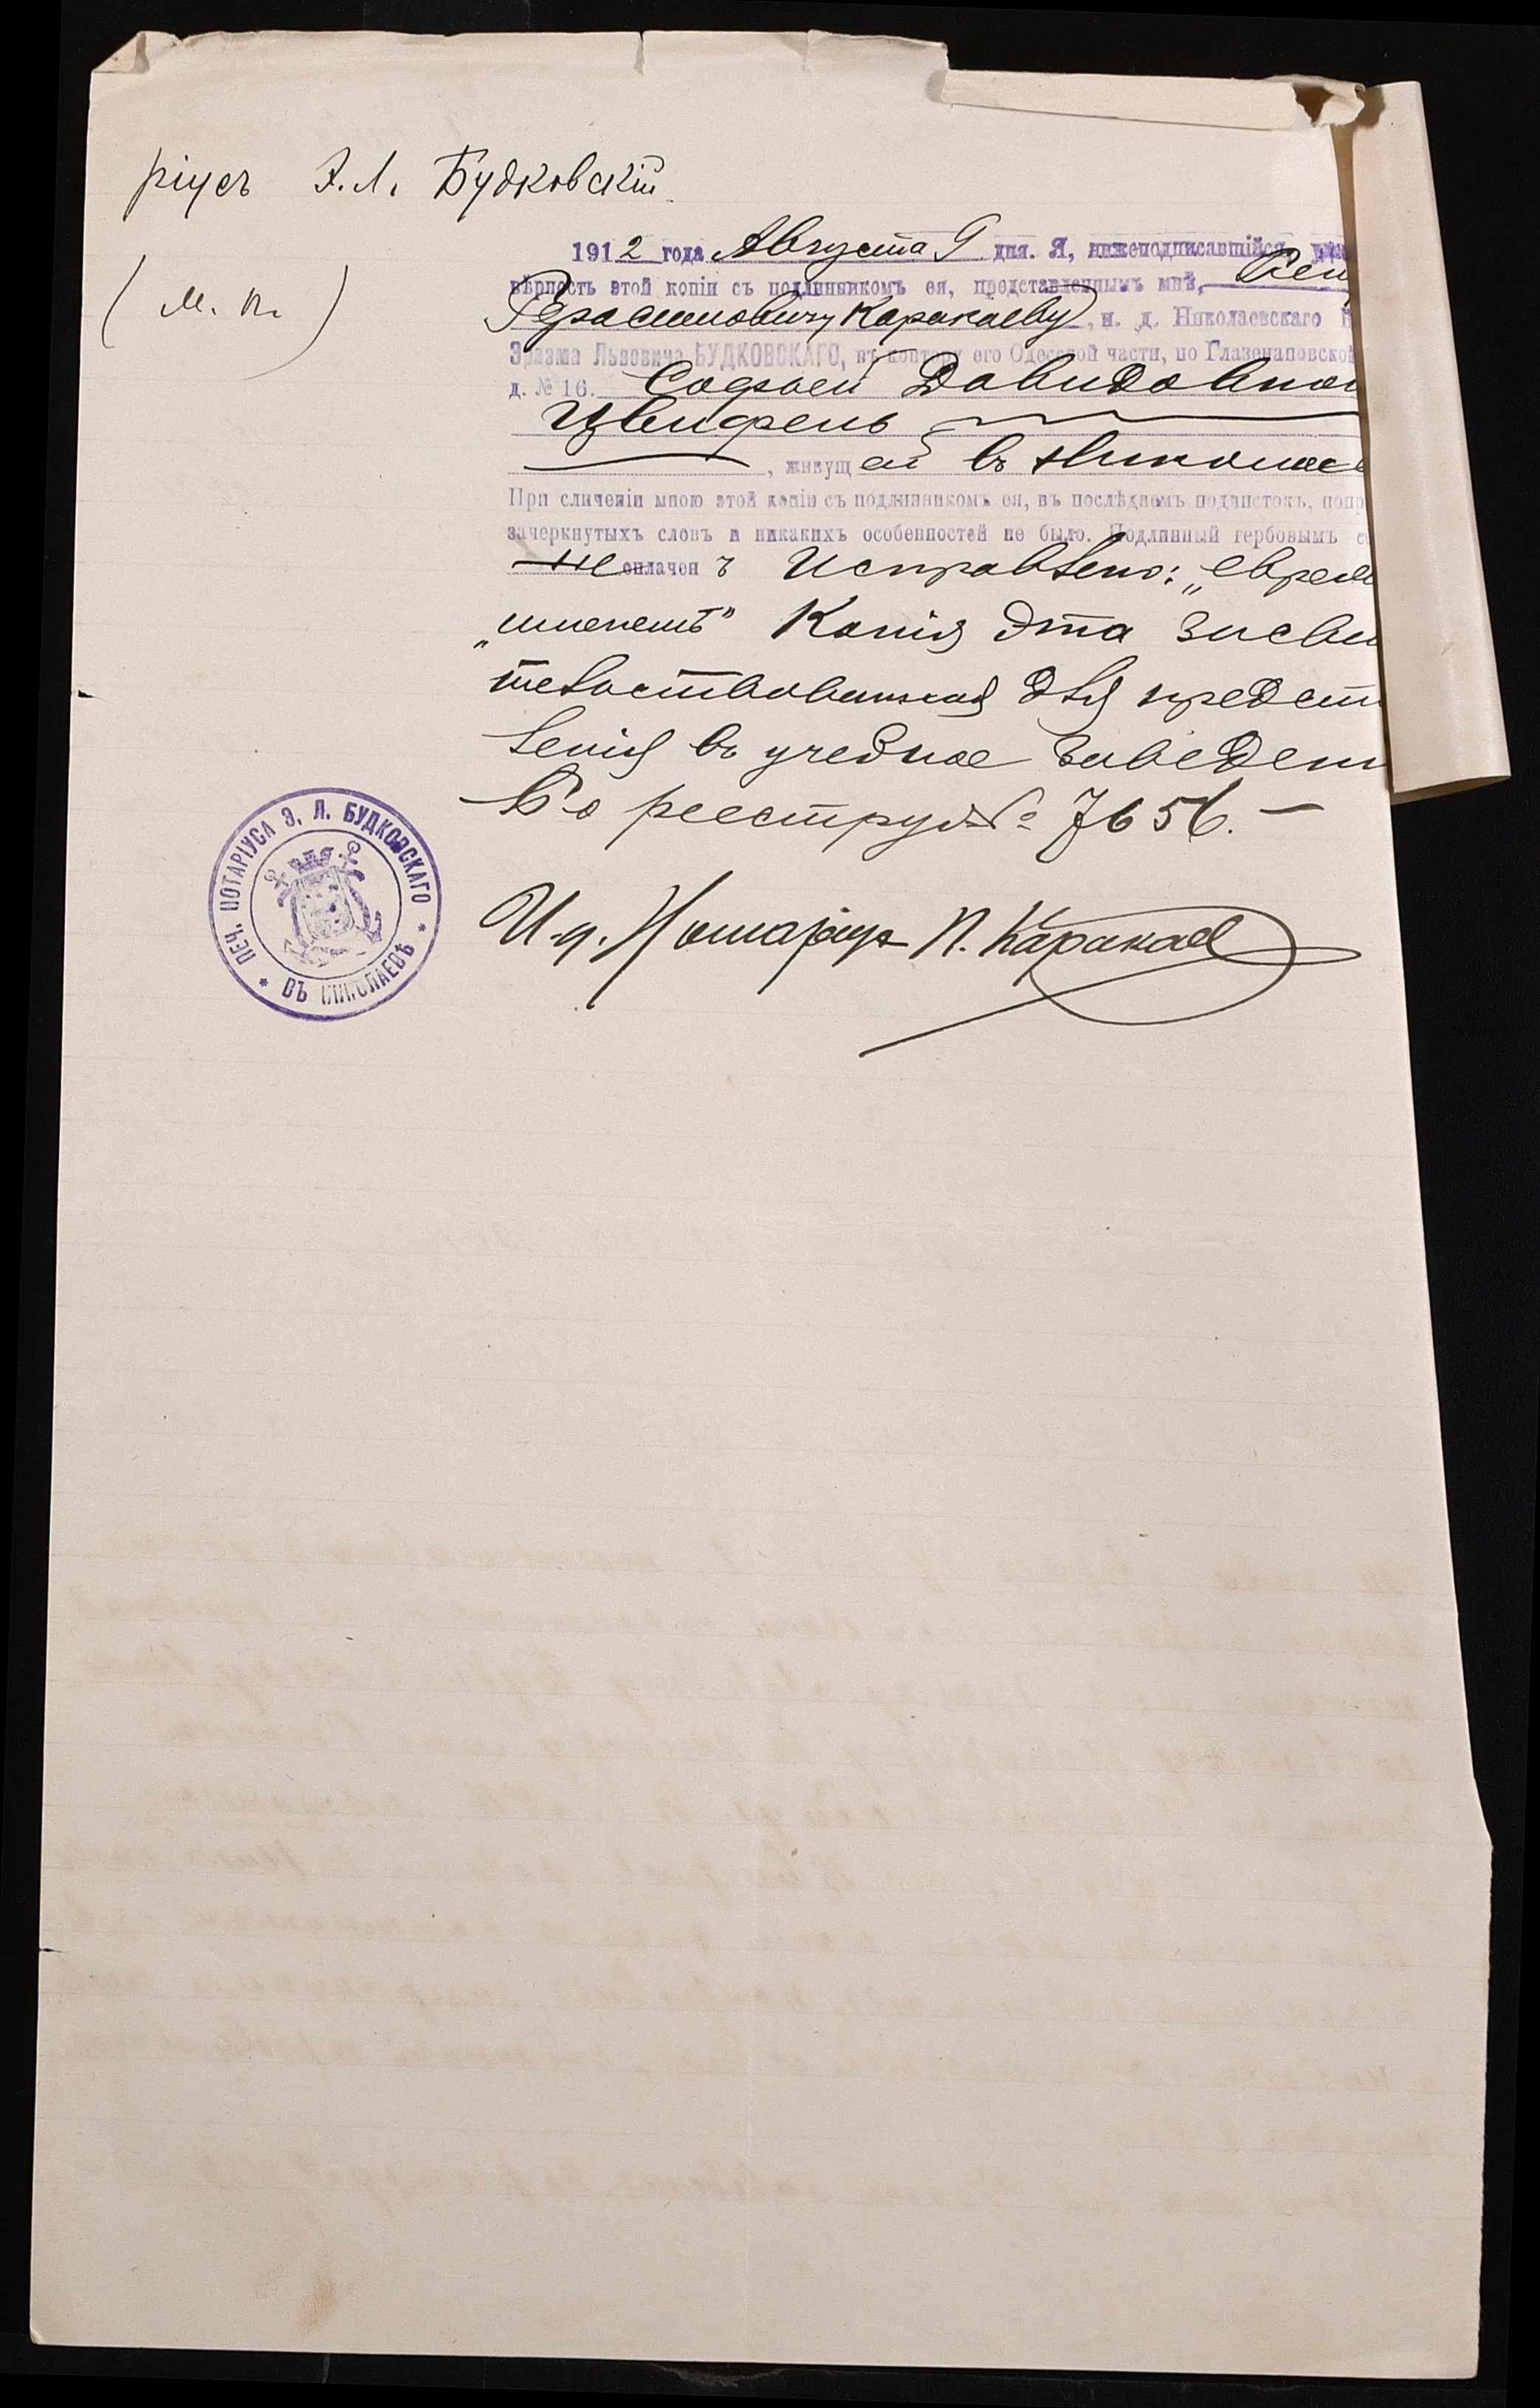 ріусъ Э. Л. Будковскій.
(м. п.)
1912 года Августа 9 дня. Я, нижеподписавшійся,
вѣрность этой копіи съ подлинникомъ ея, представленнымъ мнѣ,
Герасимовичу Каракаеву, и. д. Николаевскаго
Эразма Львовича БУДКОВСКАГО, въ контору его Одесской части, по Глазенаповской
д. № 16. Софьей Давидовной
Цвифель
, живущей въ Николае
При сличеніи мною этой копіи съ подлинникомъ ея, въ послѣднемъ подчистокъ, попр
зачеркнутыхъ словъ и никакихъ особенностей не было. Подлинный гербовымъ с
не оплаченъ Исправлено: „еврей
Копія эта засви
тельствованная для предст
ленія въ учебное заведен
По реестру № 7656.—
И. д. Нотаріуса П. Каракаев
* ПЕЧ. НОТАРІУСА Э. Л. БУДКОВСКАГО * ВЪ НИКОЛАЕВѢ